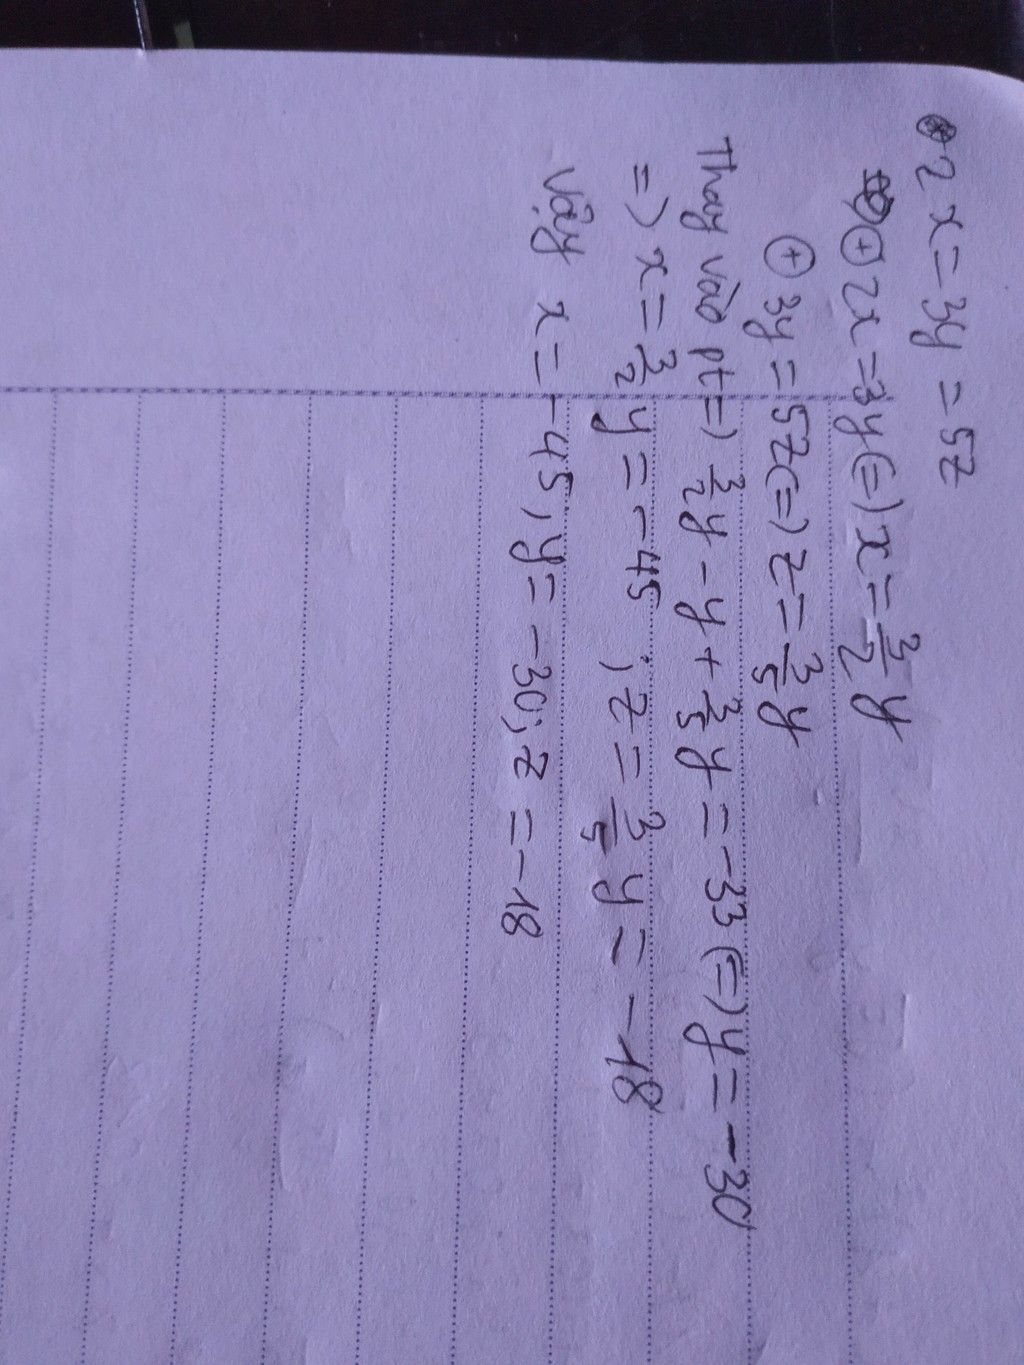 2x = 3y = 5z
⊕ 2x = 3y (=) x = 3/2 y
⊕ 3y = 5z (=) z = 3/5 y
Thay vào pt =) 3/2 y - y + 3/5 y = -33 (=) y = -30
=) x = 3/2 y = -45 ; z = 3/5 y = -18
Vậy x = -45, y = -30; z = -18